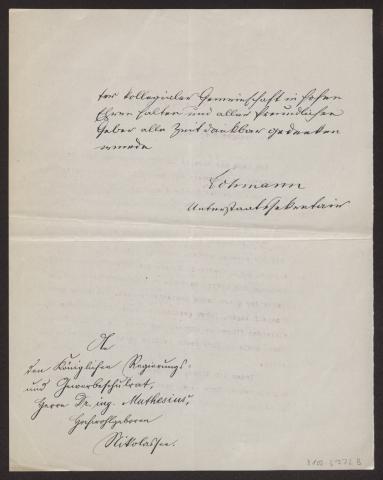 ter kollegialer Gemeinschaft in hohen
Ehren halten und aller freundlichen
Geber alle Zeit dankbar gedenken
werde
Lohmann
Unterstaatssekretair
An
den Königlichen Regierungs-
und Gewerbeschulrat,
Herrn Dr. ing. Muthesius,
Hochwohlgeboren
Nikolassee.